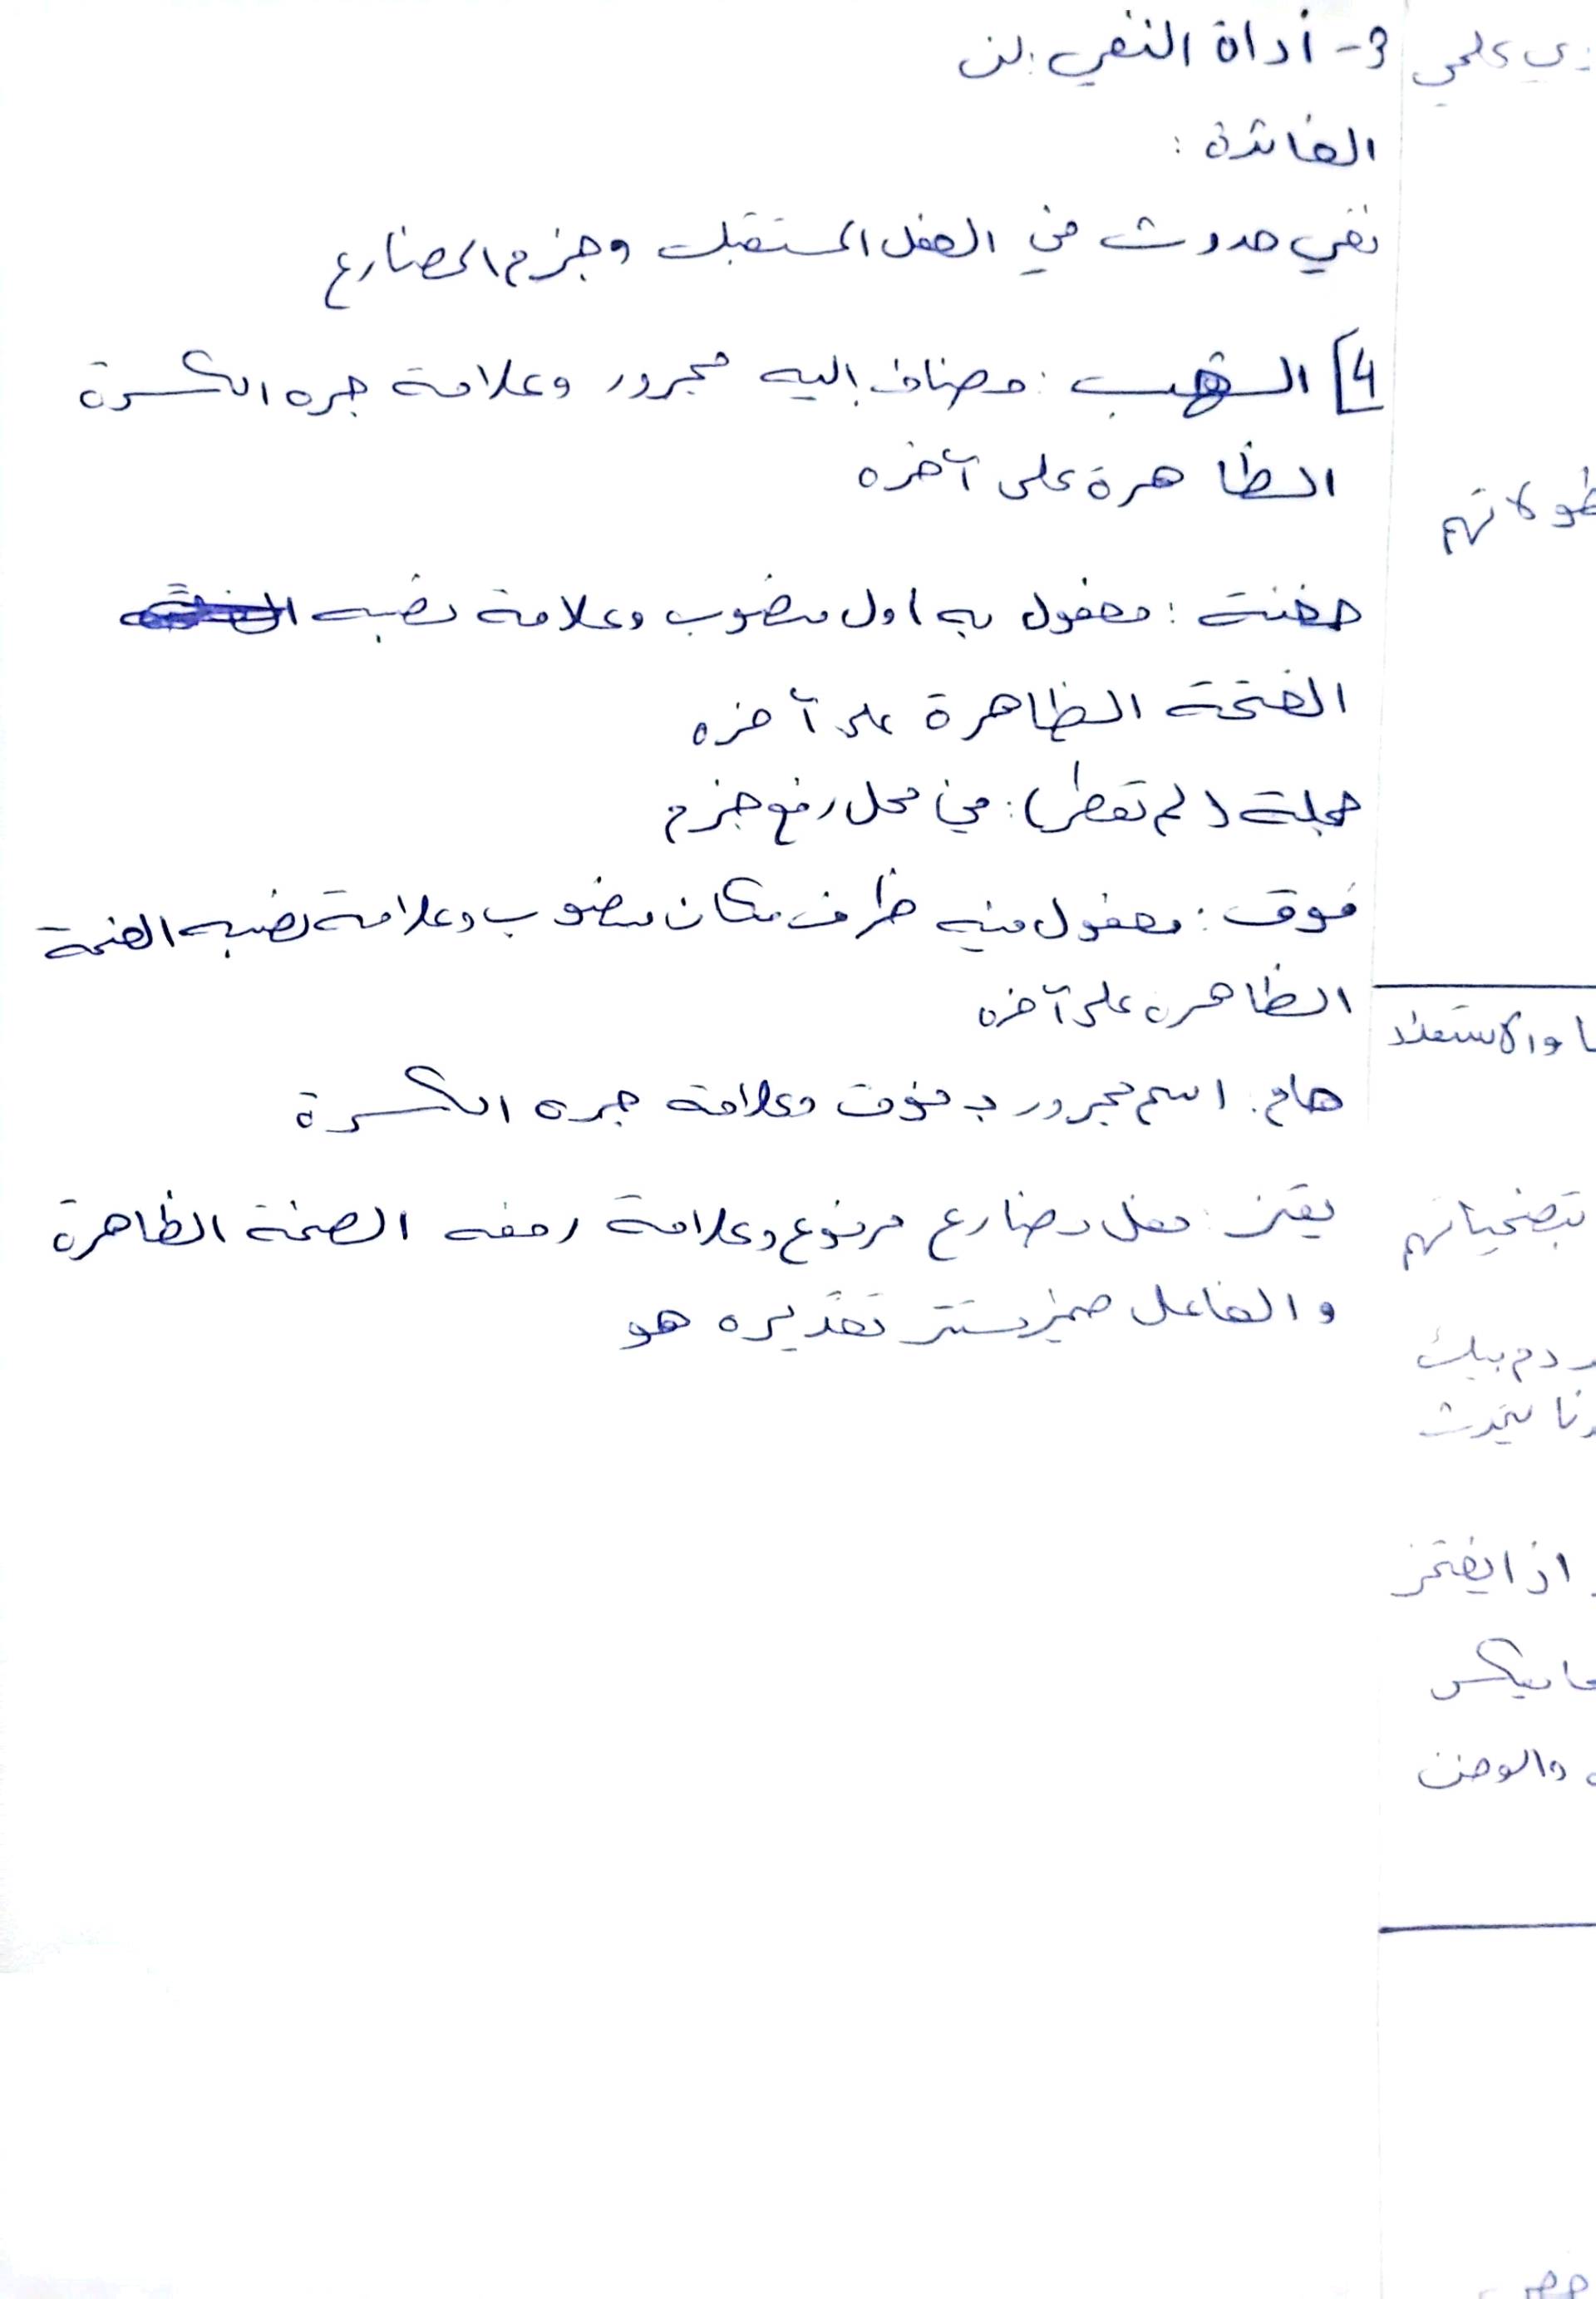 3- أداة النفي: لن
الفائدة :
نفي حدوث في الفعل المستقبل وجزم المضارع
4] الشهب : مضاف إليه مجرور وعلامة جره الكسرة
الظاهرة على آخره
حفنة : مفعول به اول منصوب وعلامة نصبه
الفتحة الظاهرة على آخره
جملة (لم تمطر) : في محل رفع جزم
فوق : مفعول فيه ظرف مكان منصوب وعلامة نصبه الفتحة
الظاهرة على آخره
هام : اسم مجرور بـ فوق وعلامة جره الكسرة
فعل مضارع مرفوع وعلامة رفعه الضمة الظاهرة
والفاعل ضمير مستتر تقديره هو
علمي
والاستعداد
بتضحياتهم
اذا يفتخر
والوطن